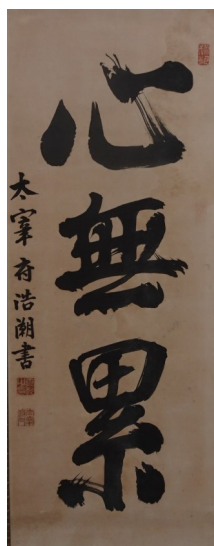 心無累
太宰府浩潮書